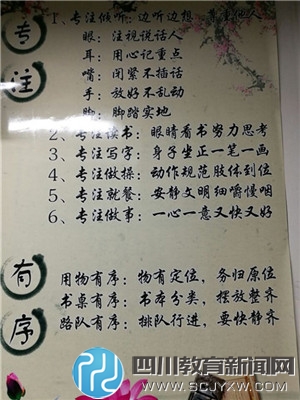 专注
1、专注倾听：边听边想 尊重他人
眼：注视说话人
耳：用心记重点
嘴：闭紧不插话
手：放好不乱动
脚：脚踏实地
2、专注读书：眼睛看书努力思考
3、专注写字：身子坐正一笔一画
4、专注做操：动作规范肢体到位
5、专注就餐：安静文明细嚼慢咽
6、专注做事：一心一意又快又好
有序
用物有序：物有定位，务归原位
书桌有序：书本分类，摆放整齐
路队有序：排队行进，要快静齐
四川教育新闻网
WWW.SCJYXW.COM